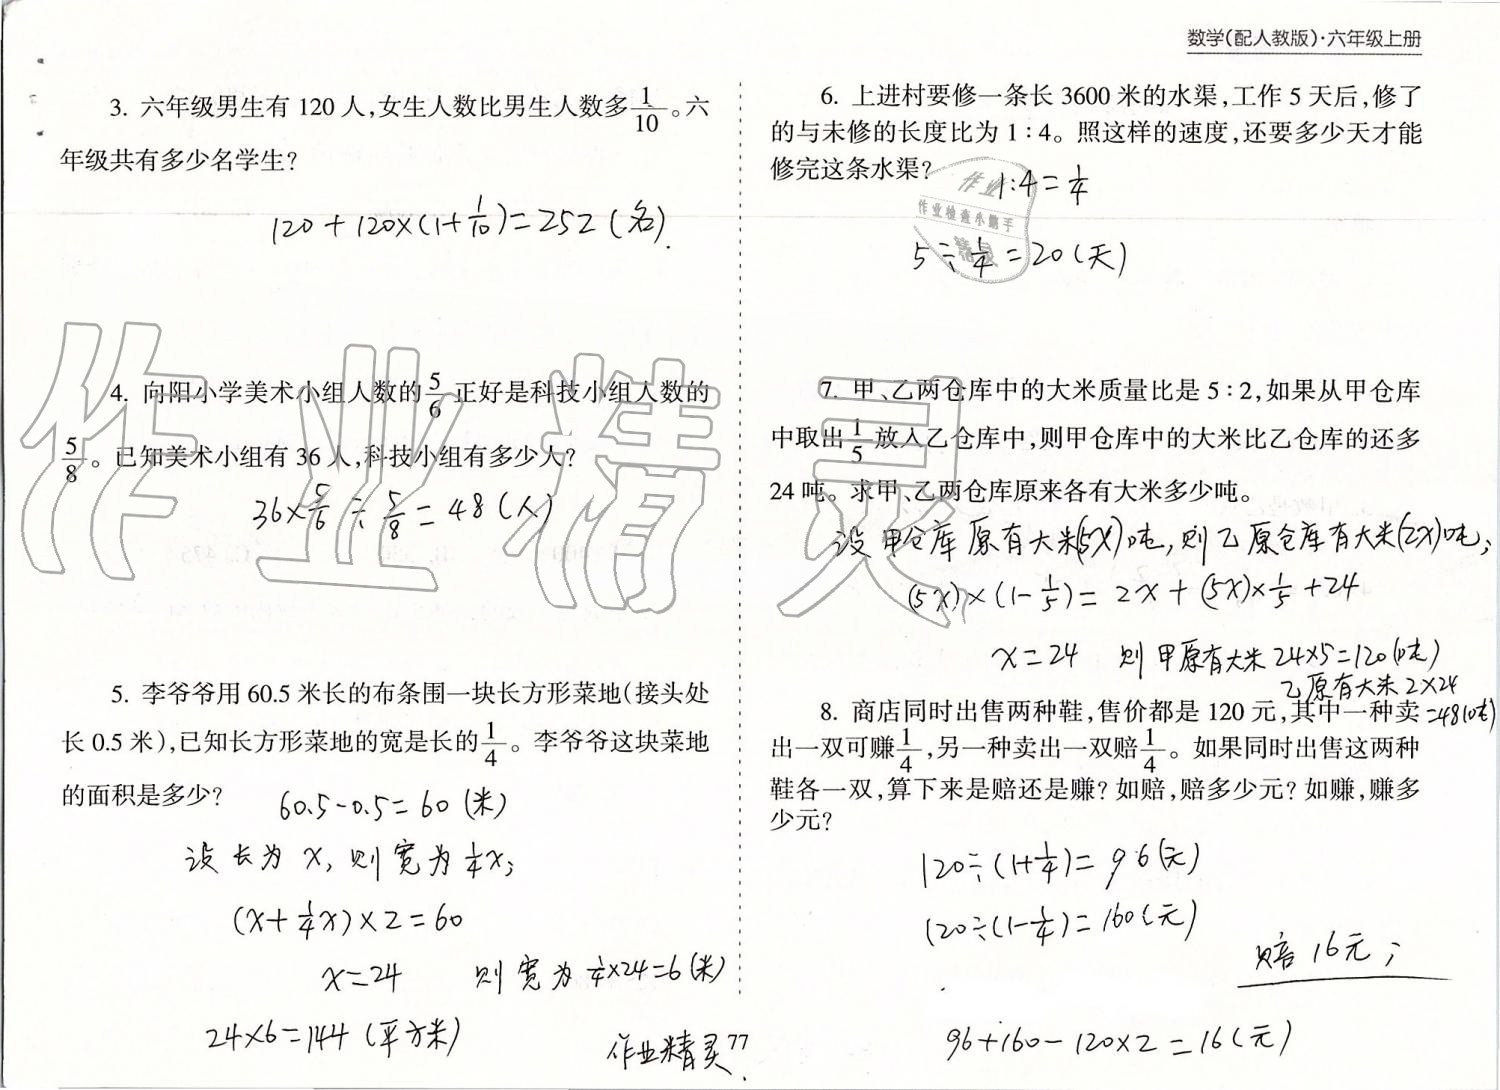 数学(配人教版)·六年级上册
3. 六年级男生有 120 人,女生人数比男生人数多1/10。六
年级共有多少名学生?
120+120×(1+1/10)=252(名).
4. 向阳小学美术小组人数的5/6正好是科技小组人数的
5/8。已知美术小组有 36 人,科技小组有多少人?
36×5/6÷5/8=48(人)
5. 李爷爷用 60.5 米长的布条围一块长方形菜地(接头处
长 0.5 米),已知长方形菜地的宽是长的1/4。李爷爷这块菜地
的面积是多少?
60.5-0.5=60(米)
设长为x,则宽为1/4x;
(x+1/4x)×2=60
x=24 则宽为1/4×24=6(米)
24×6=144(平方米)
作业精灵
77
6. 上进村要修一条长 3600 米的水渠,工作 5 天后,修了
的与未修的长度比为 1∶4。照这样的速度,还要多少天才能
修完这条水渠?
1:4=1/4
5÷1/4=20(天)
作业
作业检查小助手
精灵
7. 甲、乙两仓库中的大米质量比是 5∶2,如果从甲仓库
中取出1/5放入乙仓库中,则甲仓库中的大米比乙仓库的还多
24 吨。求甲、乙两仓库原来各有大米多少吨。
设甲仓库原有大米(5x)吨,则乙原仓库有大米(2x)吨;
(5x)×(1-1/5)=2x+(5x)×1/5+24
x=24 则甲原有大米24×5=120(吨)
乙原有大米2×24
=48(吨)
8. 商店同时出售两种鞋,售价都是 120 元,其中一种卖
出一双可赚1/4,另一种卖出一双赔1/4。如果同时出售这两种
鞋各一双,算下来是赔还是赚?如赔,赔多少元?如赚,赚多
少元?
120÷(1+1/4)=96(元)
120÷(1-1/4)=160(元)
赔16元;
96+160-120×2=16(元)
作业精灵